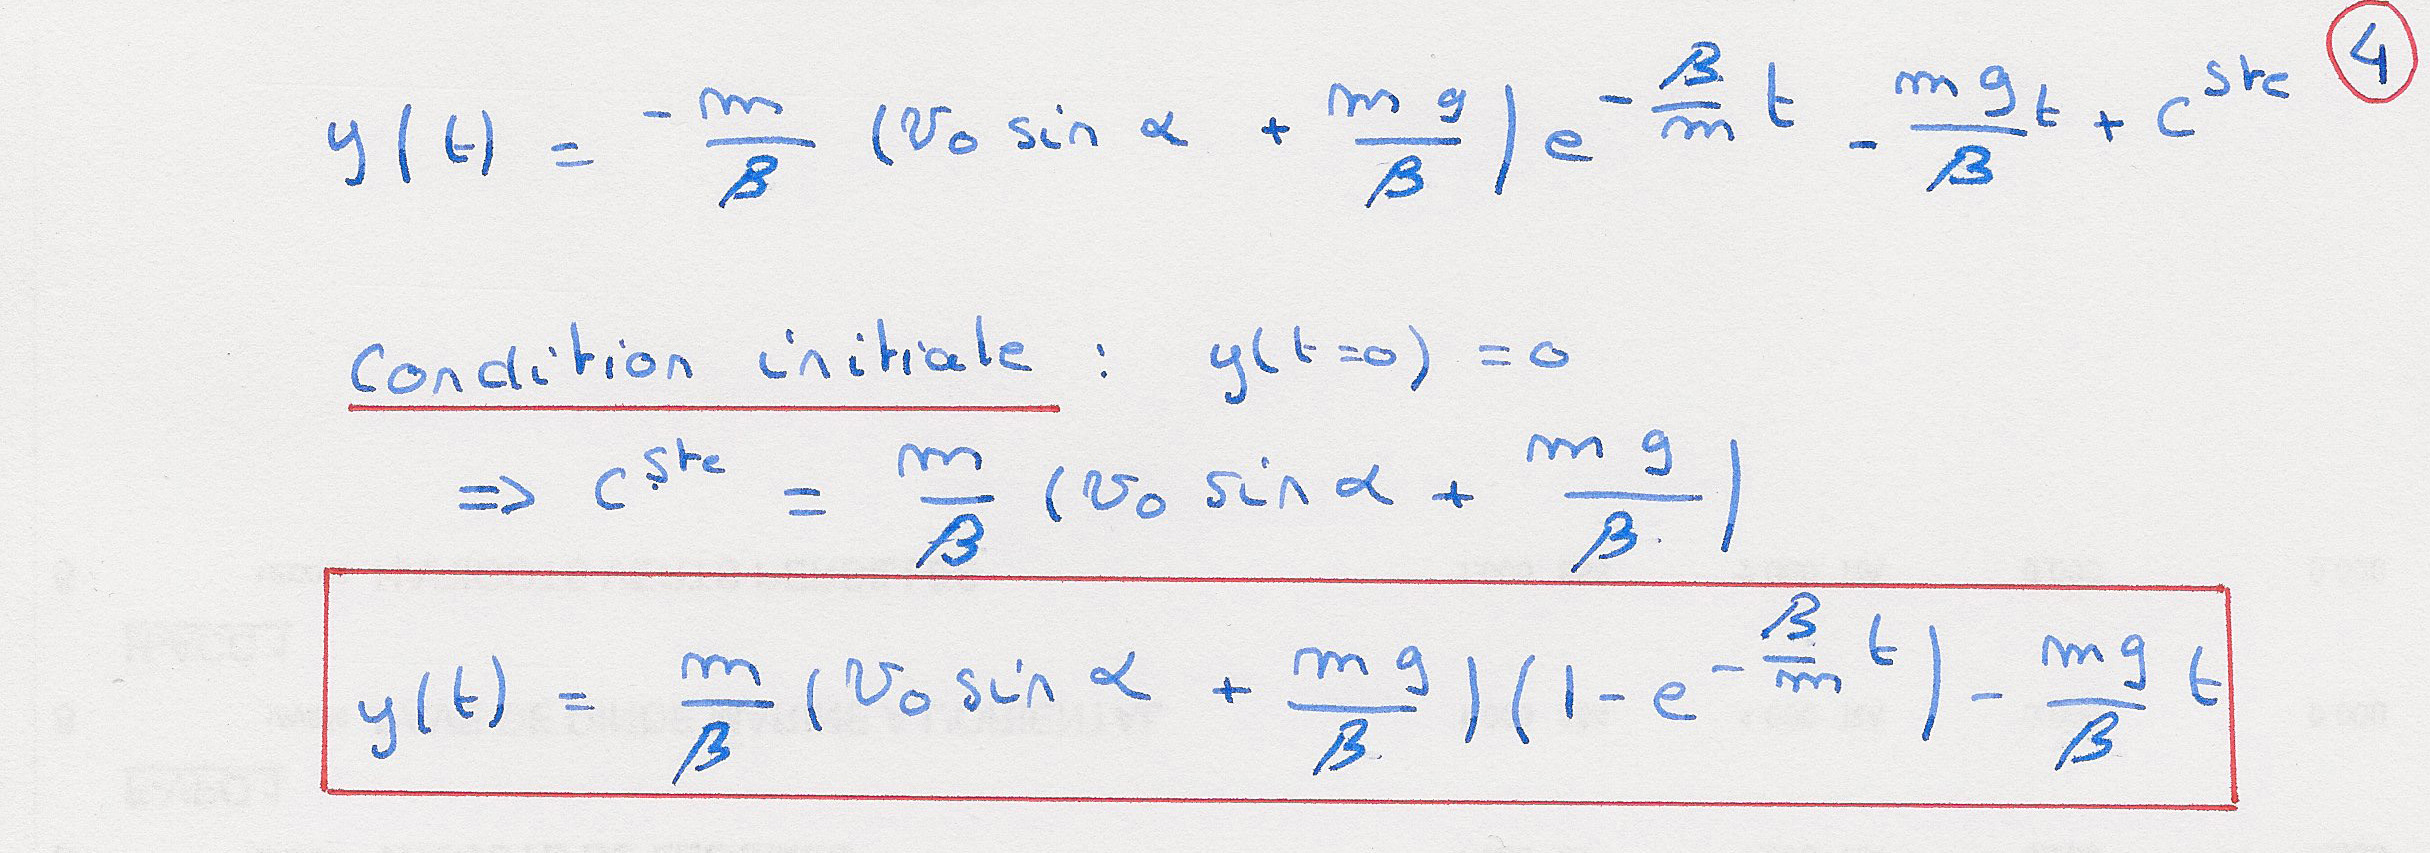 4
y(t) = -m/β (v₀ sin α + mg/β) e^(-β/m t) - mg/β t + c^ste
Condition initiale : y(t=0) = 0
=> c^ste = m/β (v₀ sin α + mg/β)
y(t) = m/β (v₀ sin α + mg/β)(1 - e^(-β/m t)) - mg/β t